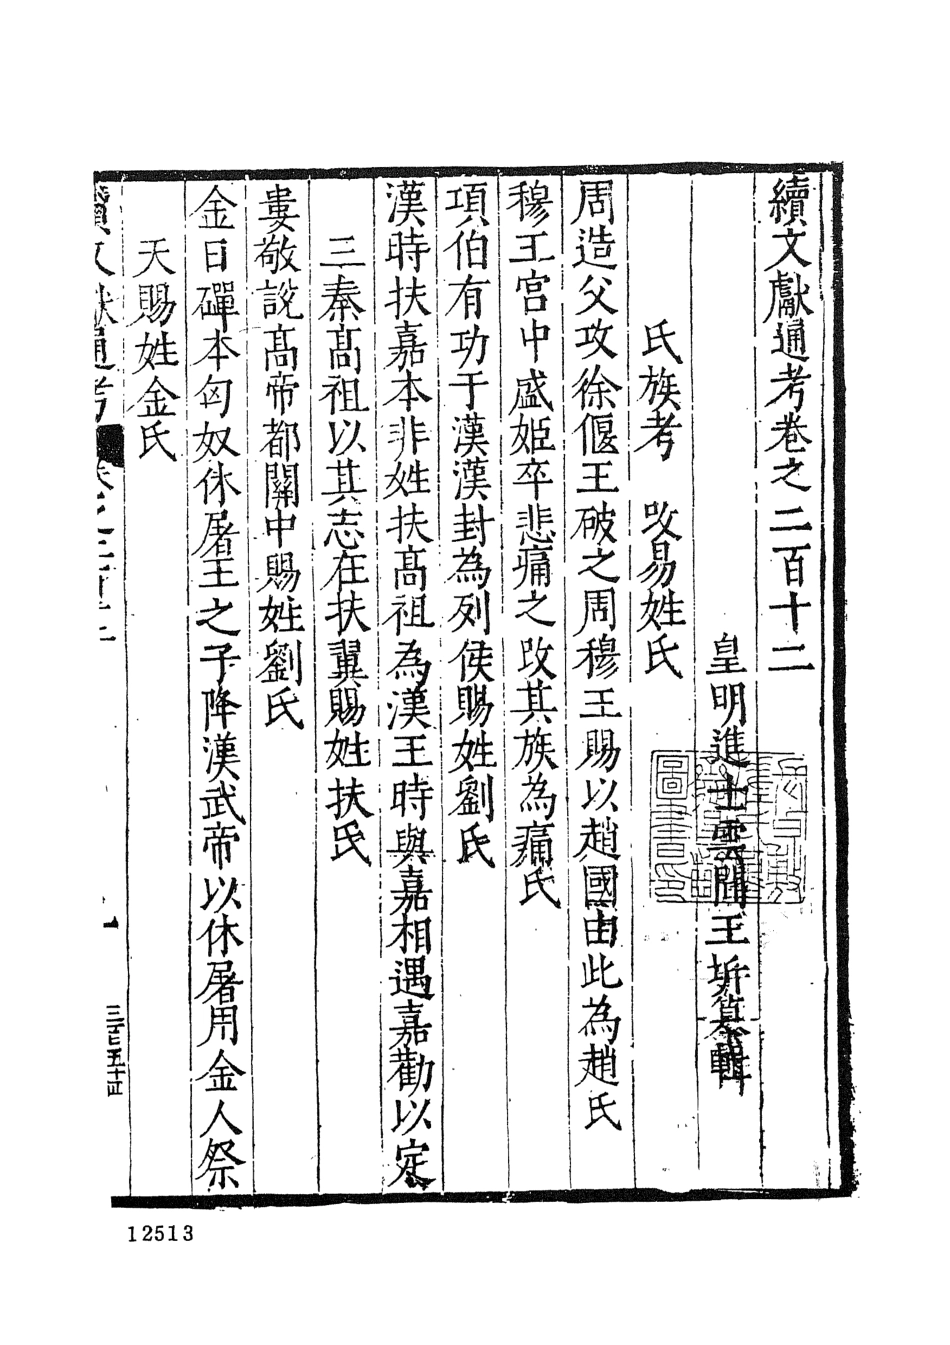 續文獻通考卷之二百十二
皇明進士雲間王圻纂輯
氏族考　改易姓氏
周造父攻徐偃王破之周穆王賜以趙國由此為趙氏
穆王宫中盛姬卒悲痛之改其族為痛氏
項伯有功于漢漢封為列侯賜姓劉氏
漢時扶嘉本非姓扶髙祖為漢王時與嘉相遇嘉勸以定
三秦髙祖以其志在扶翼賜姓扶氏
婁敬說髙帝都關中賜姓劉氏
金日磾本匈奴休屠王之子降漢武帝以休屠用金人祭
天賜姓金氏
續文獻通考
12513